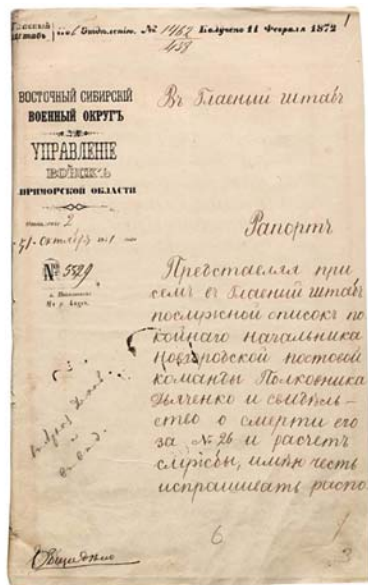 Главный Штабъ по 6 Отдѣленію. № 1462/438 Получено 11 Февраля 1872
1
ВОСТОЧНЫЙ СИБИРСКІЙ
ВОЕННЫЙ ОКРУГЪ
УПРАВЛЕНІЕ
ВОЙСКЪ
ПРИМОРСКОЙ ОБЛАСТИ
Отдѣленіе 2
31 Октября 1871 года
№ 5529
г. Николаевскъ
На р. Амурѣ.
Въ Главный штабъ
Рапортъ
Представляя при
семъ въ Главный штабъ
послужной списокъ по
койнаго начальника
Новгородской постовой
команды Полковника
Дьяченко и свидѣтель-
ство о смерти его
за № 26 и расчетъ
службы, имѣю честь
испрашивать распо
6
3